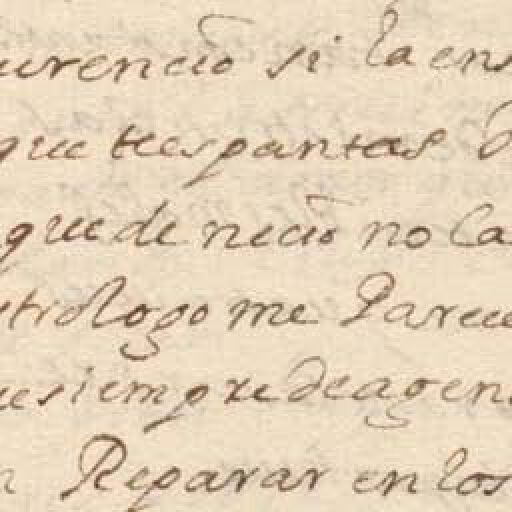 urencio si la ens
que te espantas
que de necio no la
strologo me Parece
ue siempre de agen
n Reparar en los